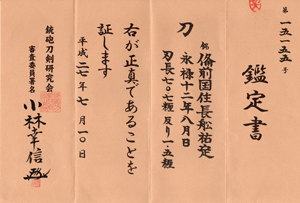 第一五一五五号
鑑定書
刀
銘 備前国住長舩祐定
永禄十二年八月日
刃長七〇七粍 反り一五粍
右が正真であることを
証します
平成二七年七月一〇日
銃砲刀剣研究会
審査委員署名
小林幸信